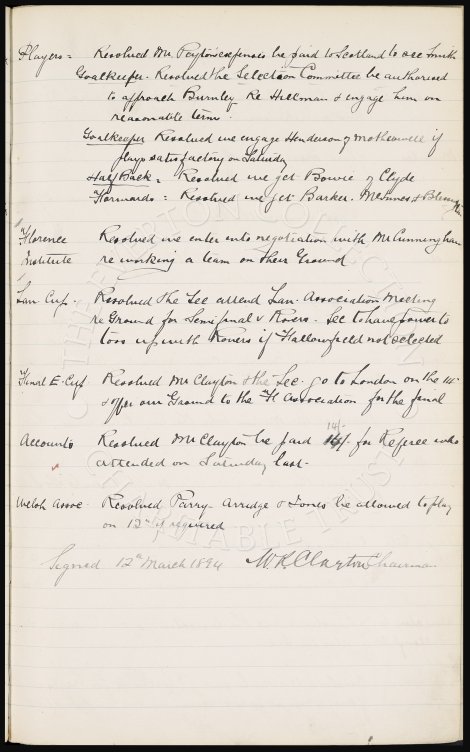 Players = Resolved Mr. Payton's expenses be paid to Scotland to see Smith
Goalkeeper. Resolved the Selection Committee be authorised
to approach Burnley Re Hillman & engage him on
reasonable terms.
Goalkeeper Resolved we engage Henderson of Motherwell if
plays satisfactory on Saturday
Half Back = Resolved we get Bowie of Clyde
Forwards = Resolved we get Barker. McInnes &
Florence Institute Resolved we enter into negotiation with Mr Cunningham
re working a team on their Ground
Lan Cup. Resolved the Sec attend Lan. Association Meeting
re Ground for Semi final v Rovers. Sec to have power to
toss up with Rovers if Fallowfield not selected
Final E. Cup Resolved Mr Clayton & the Sec. go to London on the
& offer our Ground to the Association for the final
Accounts Resolved Mr Clayton be paid 14/- for Referee who
attended on Saturday last.
Welsh Assoc Resolved Parry Arridge & Jones be allowed to play
on 12th if required
Signed 12th March 1894 W.R. Clayton Chairman